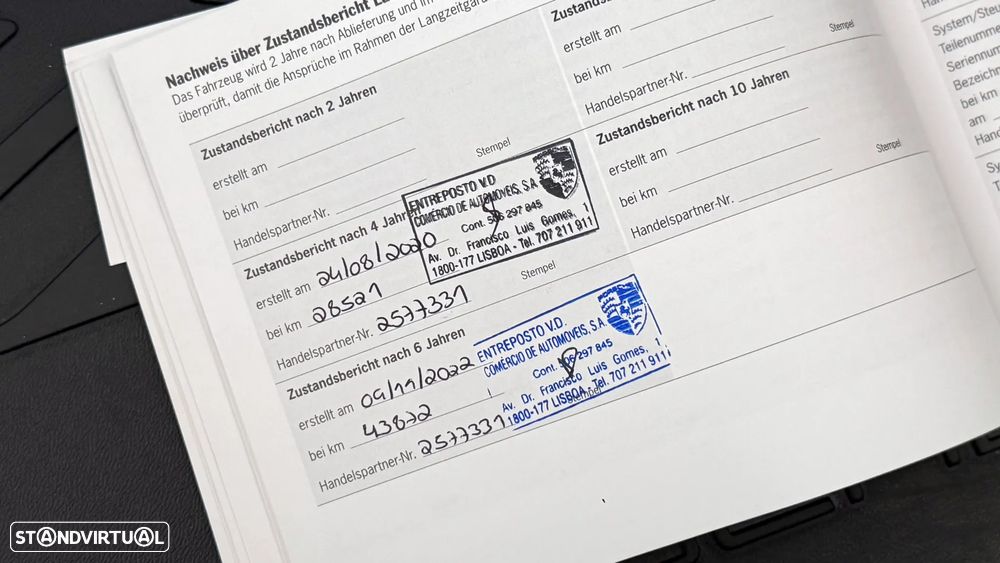 Nachweis über Zustandsbericht
Das Fahrzeug wird 2 Jahre nach Ablieferung und
überprüft, damit die Ansprüche im Rahmen der Langzeitgar
Zustandsbericht nach 2 Jahren
erstellt am
bei km
Handelspartner-Nr.
Stempel
Zustandsbericht nach 4 Jahren
erstellt am 24/08/2020
bei km 28521
Handelspartner-Nr. 2577331
Stempel
ENTREPOSTO V.D.
COMÉRCIO DE AUTOMÓVEIS, S.A.
Cont. 506 297 845
Av. Dr. Francisco Luis Gomes, 1
1800-177 LISBOA - Tel. 707 211 911
Zustandsbericht nach 6 Jahren
erstellt am 09/11/2022
bei km 43872
Handelspartner-Nr. 2577331
Stempel
ENTREPOSTO V.D.
COMÉRCIO DE AUTOMÓVEIS, S.A.
Cont. 506 297 845
Av. Dr. Francisco Luis Gomes, 1
1800-177 LISBOA - Tel. 707 211 911
erstellt am
bei km
Handelspartner-Nr.
Stempel
Zustandsbericht nach 10 Jahren
erstellt am
bei km
Handelspartner-Nr.
Stempel
Teilenummer
bei km
am
STANDVIRTUAL